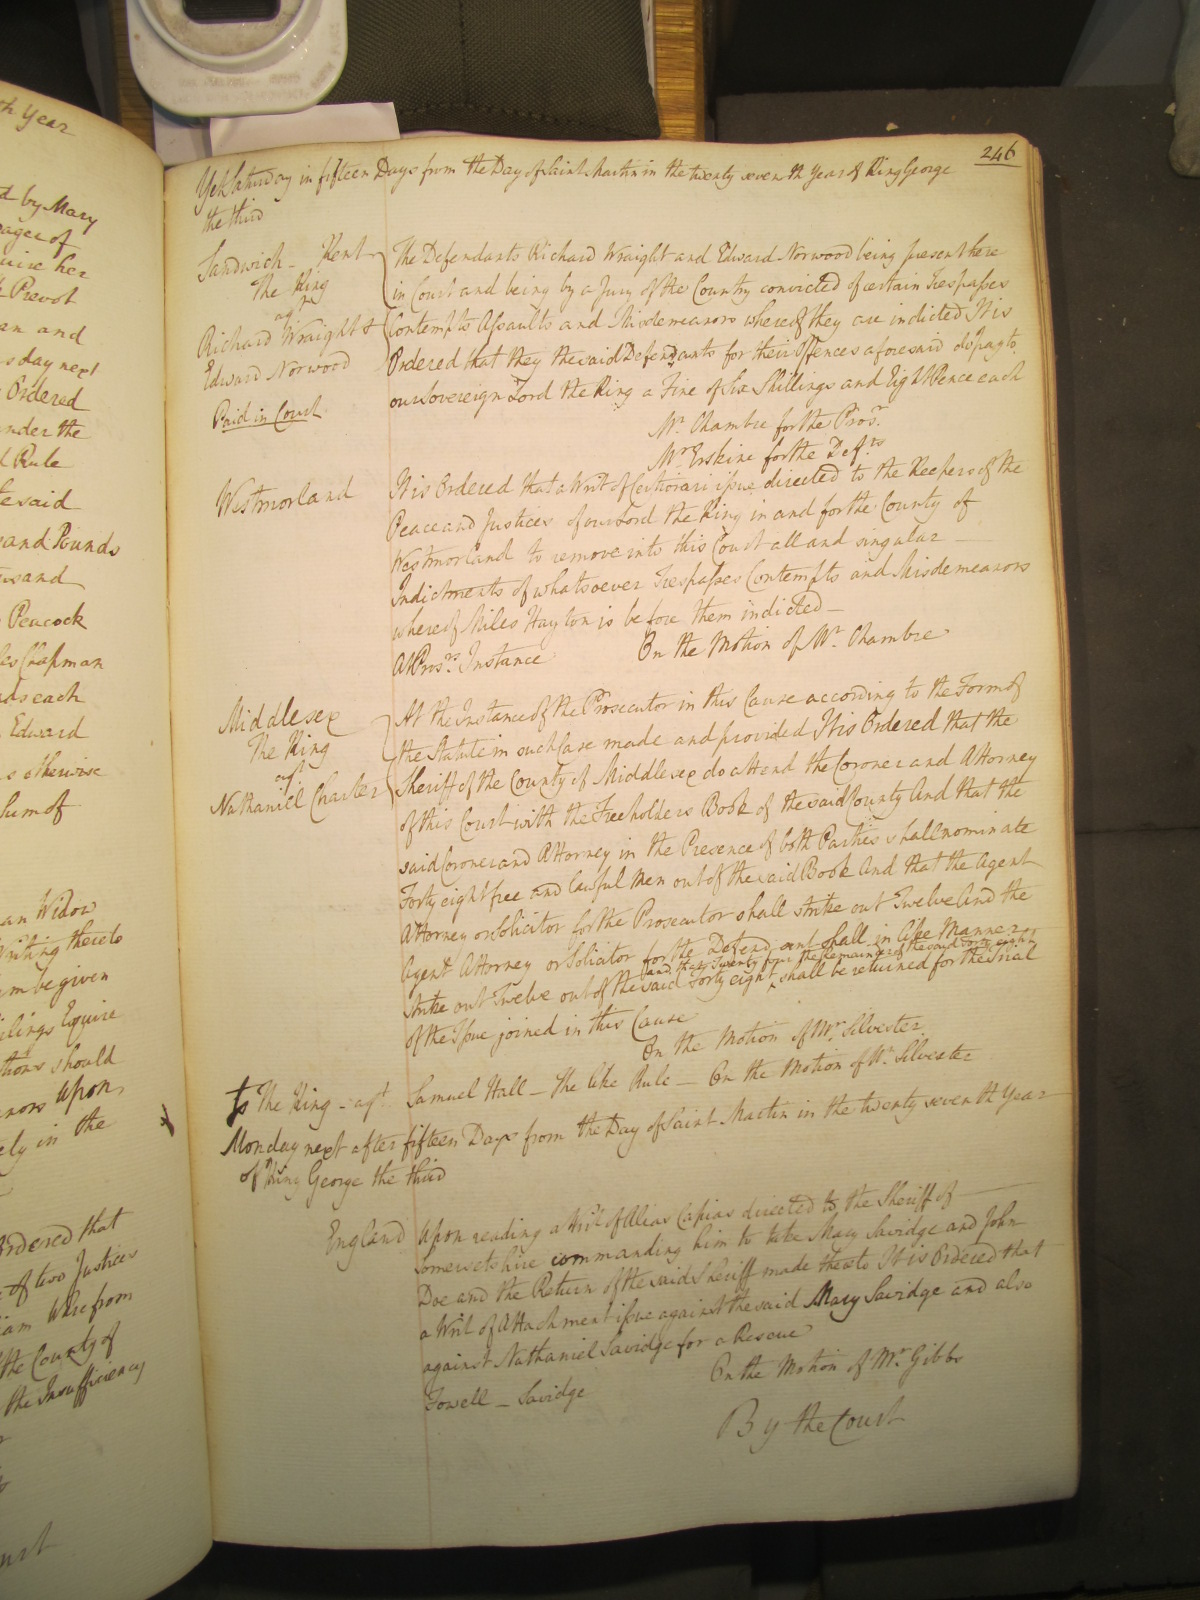 th Year
d by Mary
ager of
uire her
Prevot
an and
sday next
Ordered
nder the
Rule
te said
sand Pounds
usand
Peacock
les Chapman
nds each
Edward
s otherwise
Sum of
an Widow
Writing thereto
m be given
ilings Esquire
tions should
nors upon
ely in the
Ordered that
of two Justices
iam Ware from
the County of
the Insufficiency
urt
246
Yet Saturday in fifteen Days from the Day of Saint Martin in the twenty seventh Year of King George
the third
Sandwich - Kent
The King
agt
Richard Wraight &
Edward Norwood
Paid in Court
The Defendants Richard Wraight and Edward Norwood being present here
in Court and being by a Jury of the Country convicted of certain Trespasses
Contempts Assaults and Misdemeanors whereof they are indicted It is
Ordered that they the said Defendants for their Offences aforesaid do pay to
our Sovereign Lord the King a Fine of Six Shillings and Eight Pence each
Mr. Chambre for the Prosr.
Mr. Erskine for the Defts.
Westmorland
It is Ordered that a Writ of Certiorari issue directed to the Keepers of the
Peace and Justices of our Lord the King in and for the County of
Westmorland to remove into this Court all and singular
Indictments of whatsoever Trespasses Contempts and Misdemeanors
whereof Miles Hayton is before them indicted
At Prosrs. Instance On the Motion of Mr. Chambre
Middlesex
The King
agt
Nathaniel Charter
At the Instance of the Prosecutor in this Cause according to the Form of
the Statute in such case made and provided It is Ordered that the
Sheriff of the County of Middlesex do attend the Coroner and Attorney
of this Court with the Freeholders Book of the said County And that the
said Coroner and Attorney in the Presence of both Parties shall nominate
Forty eight free and lawful Men out of the said Book And that the Agent
Attorney or Solicitor for the Prosecutor shall strike out Twelve And the
Agent Attorney or Solicitor for the Defendant shall in like Manner
and that Twenty four the Remainder of the said forty eight
strike out Twelve out of the said Forty eight ‸ shall be returned for the Trial
of the Issue joined in this Cause
On the Motion of Mr. Silvester
Is The King - agt. Samuel Hall - the like Rule - On the Motion of Mr. Silvester
Monday next after fifteen Days from the Day of Saint Martin in the twenty seventh Year
of King George the third
England
Upon reading a Writ of Alias Capias directed to the Sheriff of
Somersetshire commanding him to take Mary Savidge and John
Doe and the Return of the said Sheriff made thereto It is Ordered that
a Writ of Attachment issue against the said Mary Savidge and also
against Nathaniel Savidge for a Rescue
On the Motion of Mr. Gibbs
Towell - Savidge
By the Court